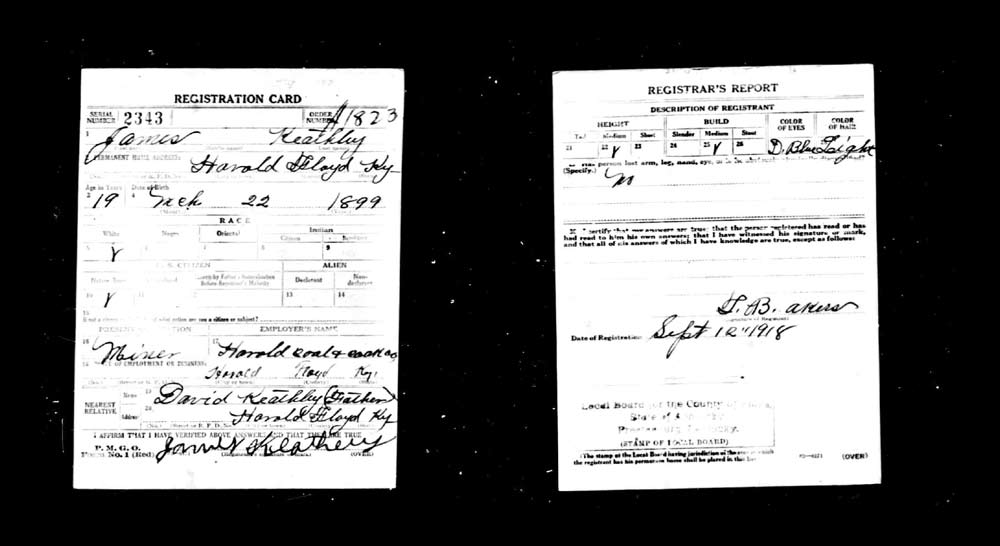 REGISTRATION CARD
SERIAL NUMBER 2343 ORDER NUMBER A1823
1 James Keathley
PERMANENT HOME ADDRESS:
Harold Floyd Ky
Age in Years Date of Birth
2 19 Mch 22 1899
RACE
White Negro Oriental Indian
Citizen
5 ✓ 9
U. S. CITIZEN ALIEN
Declarant Non-declarant
10 ✓ 11 12 13 14
15
If not a citizen of what nation are you a citizen or subject?
PRESENT OCCUPATION EMPLOYER'S NAME
16 Miner 17 Harold coal & coak co
PLACE OF EMPLOYMENT OR BUSINESS:
Harold Floyd Ky.
NEAREST RELATIVE Name 19 David Keathley (Father)
Address 20 Harold Floyd Ky
I AFFIRM THAT I HAVE VERIFIED ABOVE ANSWERS AND THAT THEY ARE TRUE
P. M. G. O.
Form No. 1 (Red) James Keathley (OVER)
REGISTRAR'S REPORT
DESCRIPTION OF REGISTRANT
HEIGHT BUILD COLOR OF EYES COLOR OF HAIR
Tall Medium Short Slender Medium Stout
21 22 ✓ 23 24 25 ✓ 26 D. Blue Light
Has person lost arm, leg, hand, eye,
(Specify.) No
30 I certify that my answers are true; that the person registered has read or has
had read to him his own answers; that I have witnessed his signature or mark,
and that all of his answers of which I have knowledge are true, except as follows:
T. B. akers
(Signature of Registrar)
Date of Registration Sept 12" 1918
Local Board for the County of
State of Kentucky
Prestonsburg, Kentucky.
(STAMP OF LOCAL BOARD)
(The stamp of the Local Board having jurisdiction of the area in which
the registrant has his permanent home shall be placed in this box.)
(OVER)